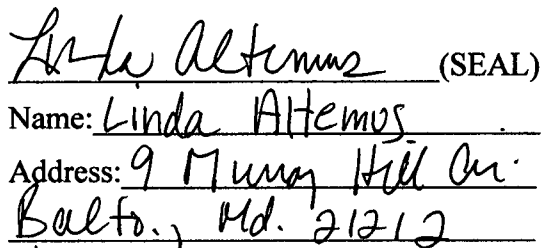 Linda Altemus (SEAL)
Name: Linda Altemus
Address: 9 Murray Hill Cir.
Balto., Md. 21212